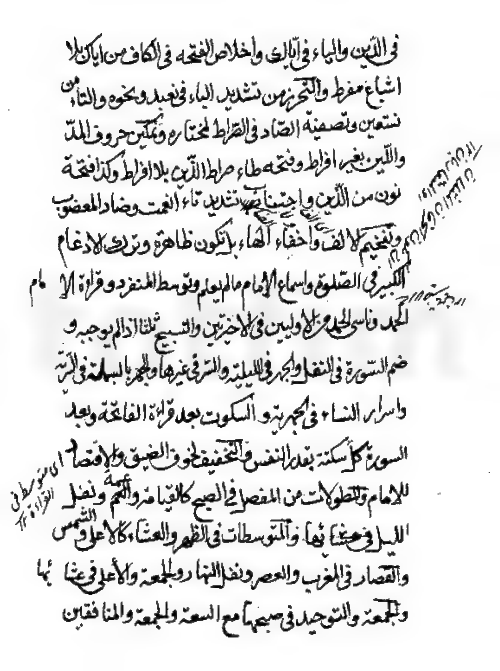 فى الدّين والياء فى ايّاك واخلاص الفتحة فى الكاف من اياك بلا
اشباع مفرط والتّحرز من تشديد الباء فى نعبد ونحوه والتاء من
نستعين وتصفية الصّاد فى الصّراط المختارة وتمكين حروف المدّ
واللّين بغير افراط وفتحة طاء صراط الذّين بلا افراط وكذا فتحة
نون من الّذين واجتناب تشديد تاء انعمت وضاد المغضوب
وتفخيم الالف واخفاء الهاء بل تكون ظاهرة وترك الادغام
الكبير فى الصّلوة واسماع الامام مالم يعلم وتوسط المنفرد وقراءة الامام
الحمد وناسى الحمد فى الاوليين فى الاخيرتين والتسبيح ثلثا اذا لم يوجبه و
ضم السّورة فى النفل والجهر فى الليليّة والسّر فى غيرها والجهر بالبسملة فى السّرّية
واسرار النساء فى الجهرية والسكوت بعد قراءة الفاتحة وبعد
السورة كل سكتة بقدر النفس والتخفيف لخوف الضيق والاقتصار
للامام والمطولات من المفصل فى الصبح كالقيامة وعمّ ونفل
الليل فى عشائها والمتوسطات فى الظهر والعشاء كالاعلى والشمس
والقصار فى المغرب والعصر ونفل النهار والجمعة والاعلى فى عشائها
والجمعة والتوحيد فى صبحها مع السعة والجمعة والمنافقين
اى متوسط فى
القراءة